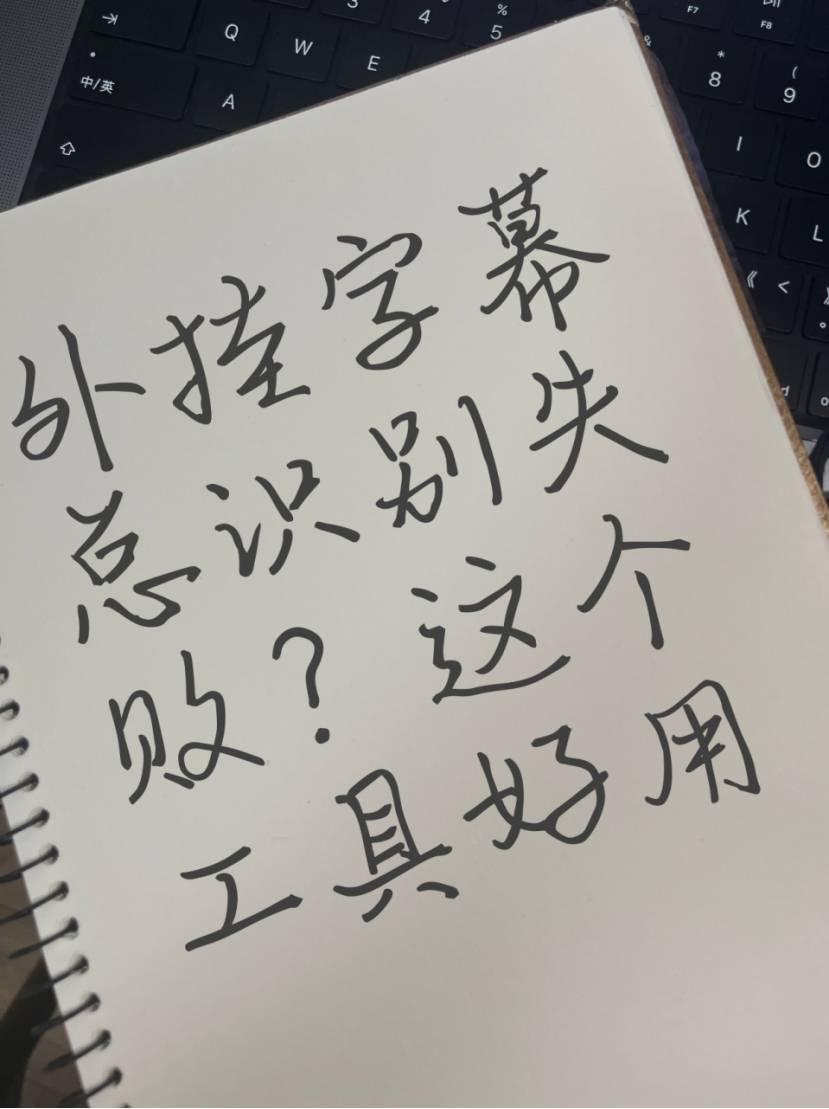 ⇥ Q W E 3 4 % 5 F7 F8
中/英 A & * 8 ( 9
⇧ I O
K L
《 <
外挂字幕
总识别失
败？这个
工具好用